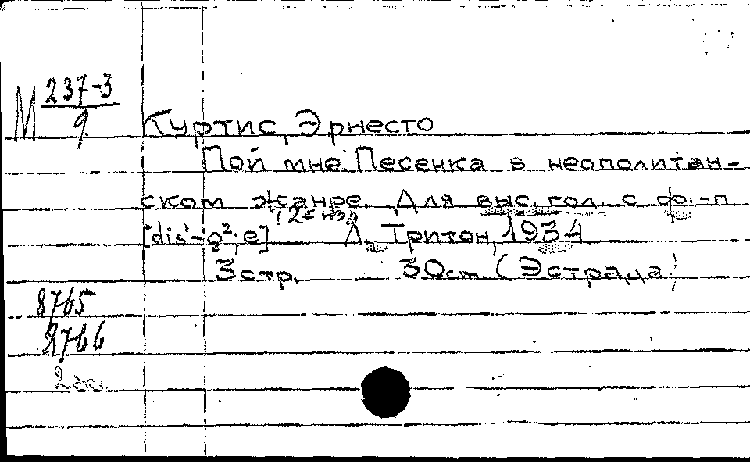 М 237-3
9
Куртис, Эрнесто
Пой мне. Песенка в неаполитан-
ском жанре. Для выс. гол. с ф.-п
(2е изд
[dis'-g²; e] Л., Тритон, 1934
3 стр. 30 см (Эстрада)
8765
8766
2 экз.